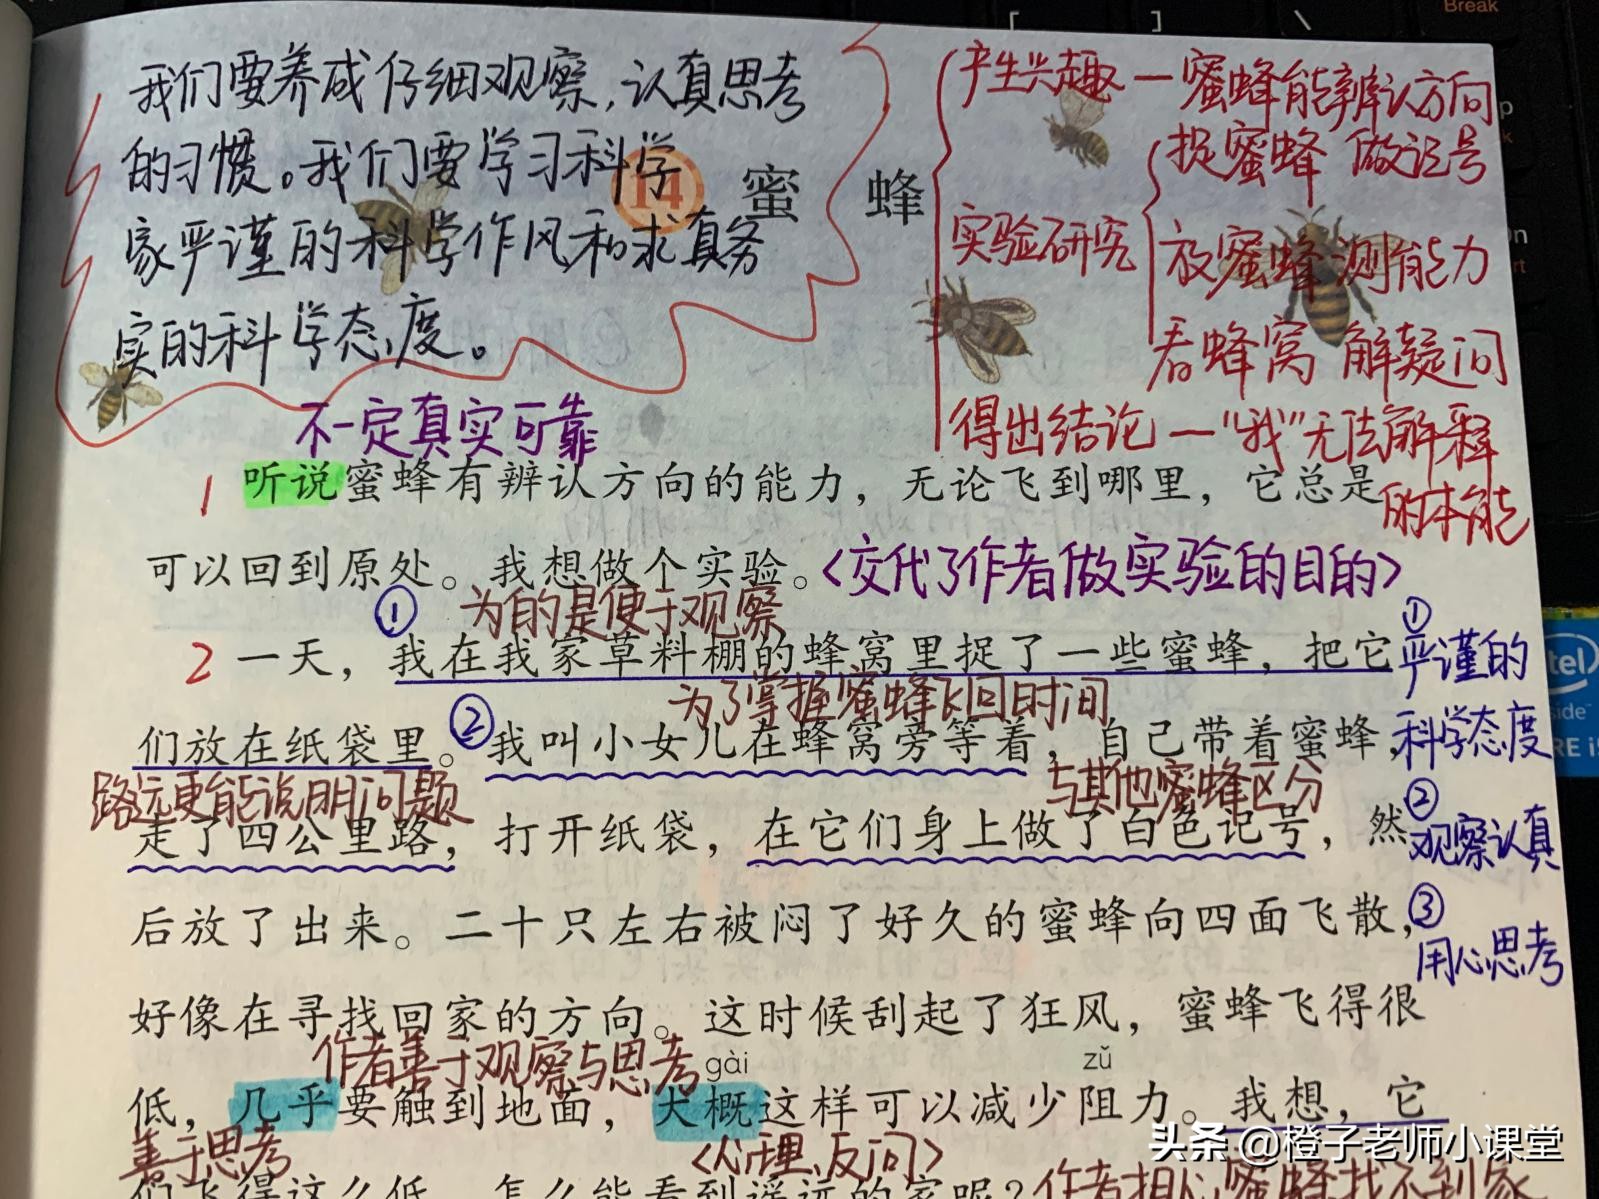 Break
[ ] \
我们要养成仔细观察，认真思考
的习惯。我们要学习科学
家严谨的科学作风和求真务
实的科学态度。
14 蜜蜂
产生兴趣—蜜蜂能辨认方向
实验研究
捉蜜蜂 做记号
放蜜蜂 测能力
看蜂窝 解疑问
得出结论—“我”无法解释
的本能
不一定真实可靠
1 听说蜜蜂有辨认方向的能力，无论飞到哪里，它总是
可以回到原处。我想做个实验。<交代了作者做实验的目的>
① 为的是便于观察
2 一天，我在我家草料棚的蜂窝里捉了一些蜜蜂，把它
①
严谨的
科学态度
为了掌握蜜蜂飞回时间
们放在纸袋里。②我叫小女儿在蜂窝旁等着，自己带着蜜蜂，
路远更能说明问题
与其他蜜蜂区分
走了四公里路，打开纸袋，在它们身上做了白色记号，然
②
观察认真
后放了出来。二十只左右被闷了好久的蜜蜂向四面飞散，
③
用心思考
好像在寻找回家的方向。这时候刮起了狂风，蜜蜂飞得很
作者善于观察与思考
gài zǔ
低，几乎要触到地面，大概这样可以减少阻力。我想，它
善于思考
<心理、反问>
们飞得这么低，怎么能看到遥远的家呢？
作者担心蜜蜂找不到家
intel
头条 @橙子老师小课堂